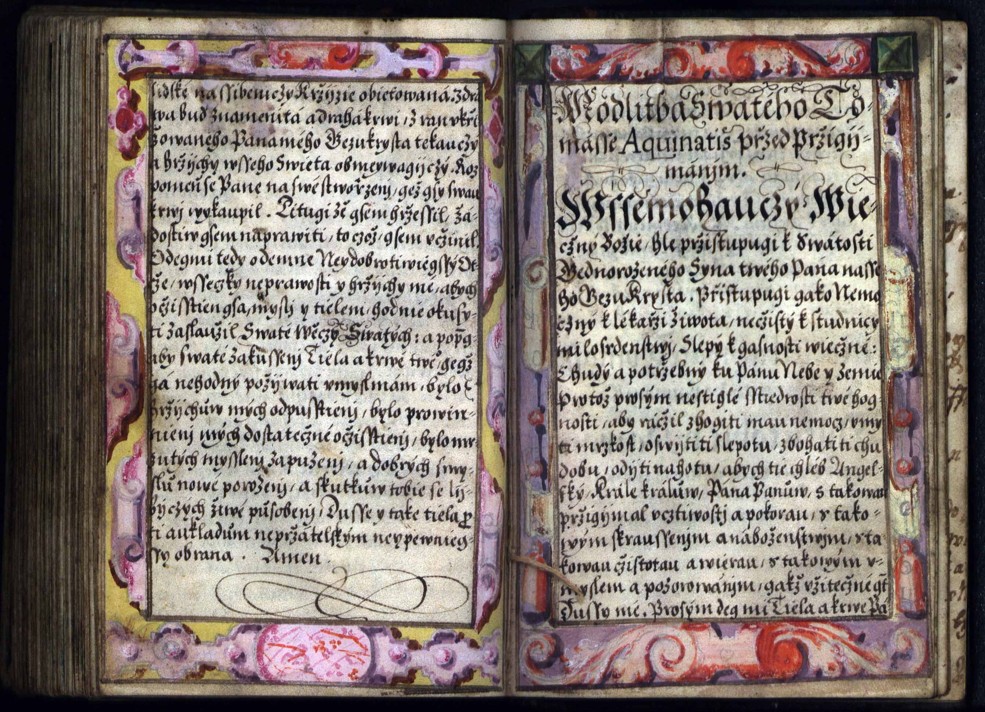 lidské na ssibeniczy Křzijzie obietowaná. Zdra
wa bud znamenitá a drahá krwi, z ran vkři
žowaného Pana mého Gezukrysta tekauczý
a hržijchý wsseho Swieta obmeywagijczý. Roz
pomeň se Pane na swé stworženj, gež gsy swau
krwj wykaupil. Litugi že gsem hržessil, žá-
dostiw gsem naprawiti, to czož gsem včžinil.
Odegmi tedy odemne Neydobrotiwiegssý Ot-
cže, wsseczky neprawosti y hržijchý mé, abých
očžisstien gsa, myslj y tielem, hodnie okusy-
ti zaslaužil Swaté Wěczý Swatých: a popřg
aby swaté zakussenj Tiela a krwe twé, gegž
gá nehodný požijwati vmysl mám, bylo
hržijchůw mých odpusstienj, bylo prowin-
nienj mých dostatečné očžisstienj, bylo mr-
zutých myssleni zapuzenj, a dobrých smy-
slů nowé porozenj, a skutkůw tobie se lij-
býczých žiwé působenj, Dusse y také tiela pro
ti aukladům nepržátelským neypewnieg-
ssý obrana. Amen.
Modlitba Swatého To-
másse Aquinatis přzed Pržigij-
mánjm.
Wssemohauczý Wie-
cžný Božie, hle pržistupugi k Swátosti
Gednorozeného Syna twého Pána nasse
ho Gezu Krysta. Přistupugi gako Nemo
cžný k lékaržj žiwota, nečžistý k studnicy
milosrdenstwj, Slepý k gasnosti wiecžné:
Chudý a potržebný ku Pánu Nebe y Zemie
Protož prosým nestihlé Sstiedrosti twé hog-
nosti, aby račžil zhogiti mau nemoc, vmy
ti mrzkost, oswijtiti slepotu, zbohatiti chu
dobu, odijti nahotu, abych tie chléb Angel-
ský, Krále králůw, Pána Pánůw, s takowau
pržigijmal vcztiwostj a pokorau, s tako-
wým skraussenjm a náboženstwjm, s ta
kowau čžistotau a wierau, s takowým v-
myslem a pozorowánjm, gakž vžitečžné gt
Dussy mé. Prosým deg mi Tiela a krwe Pá